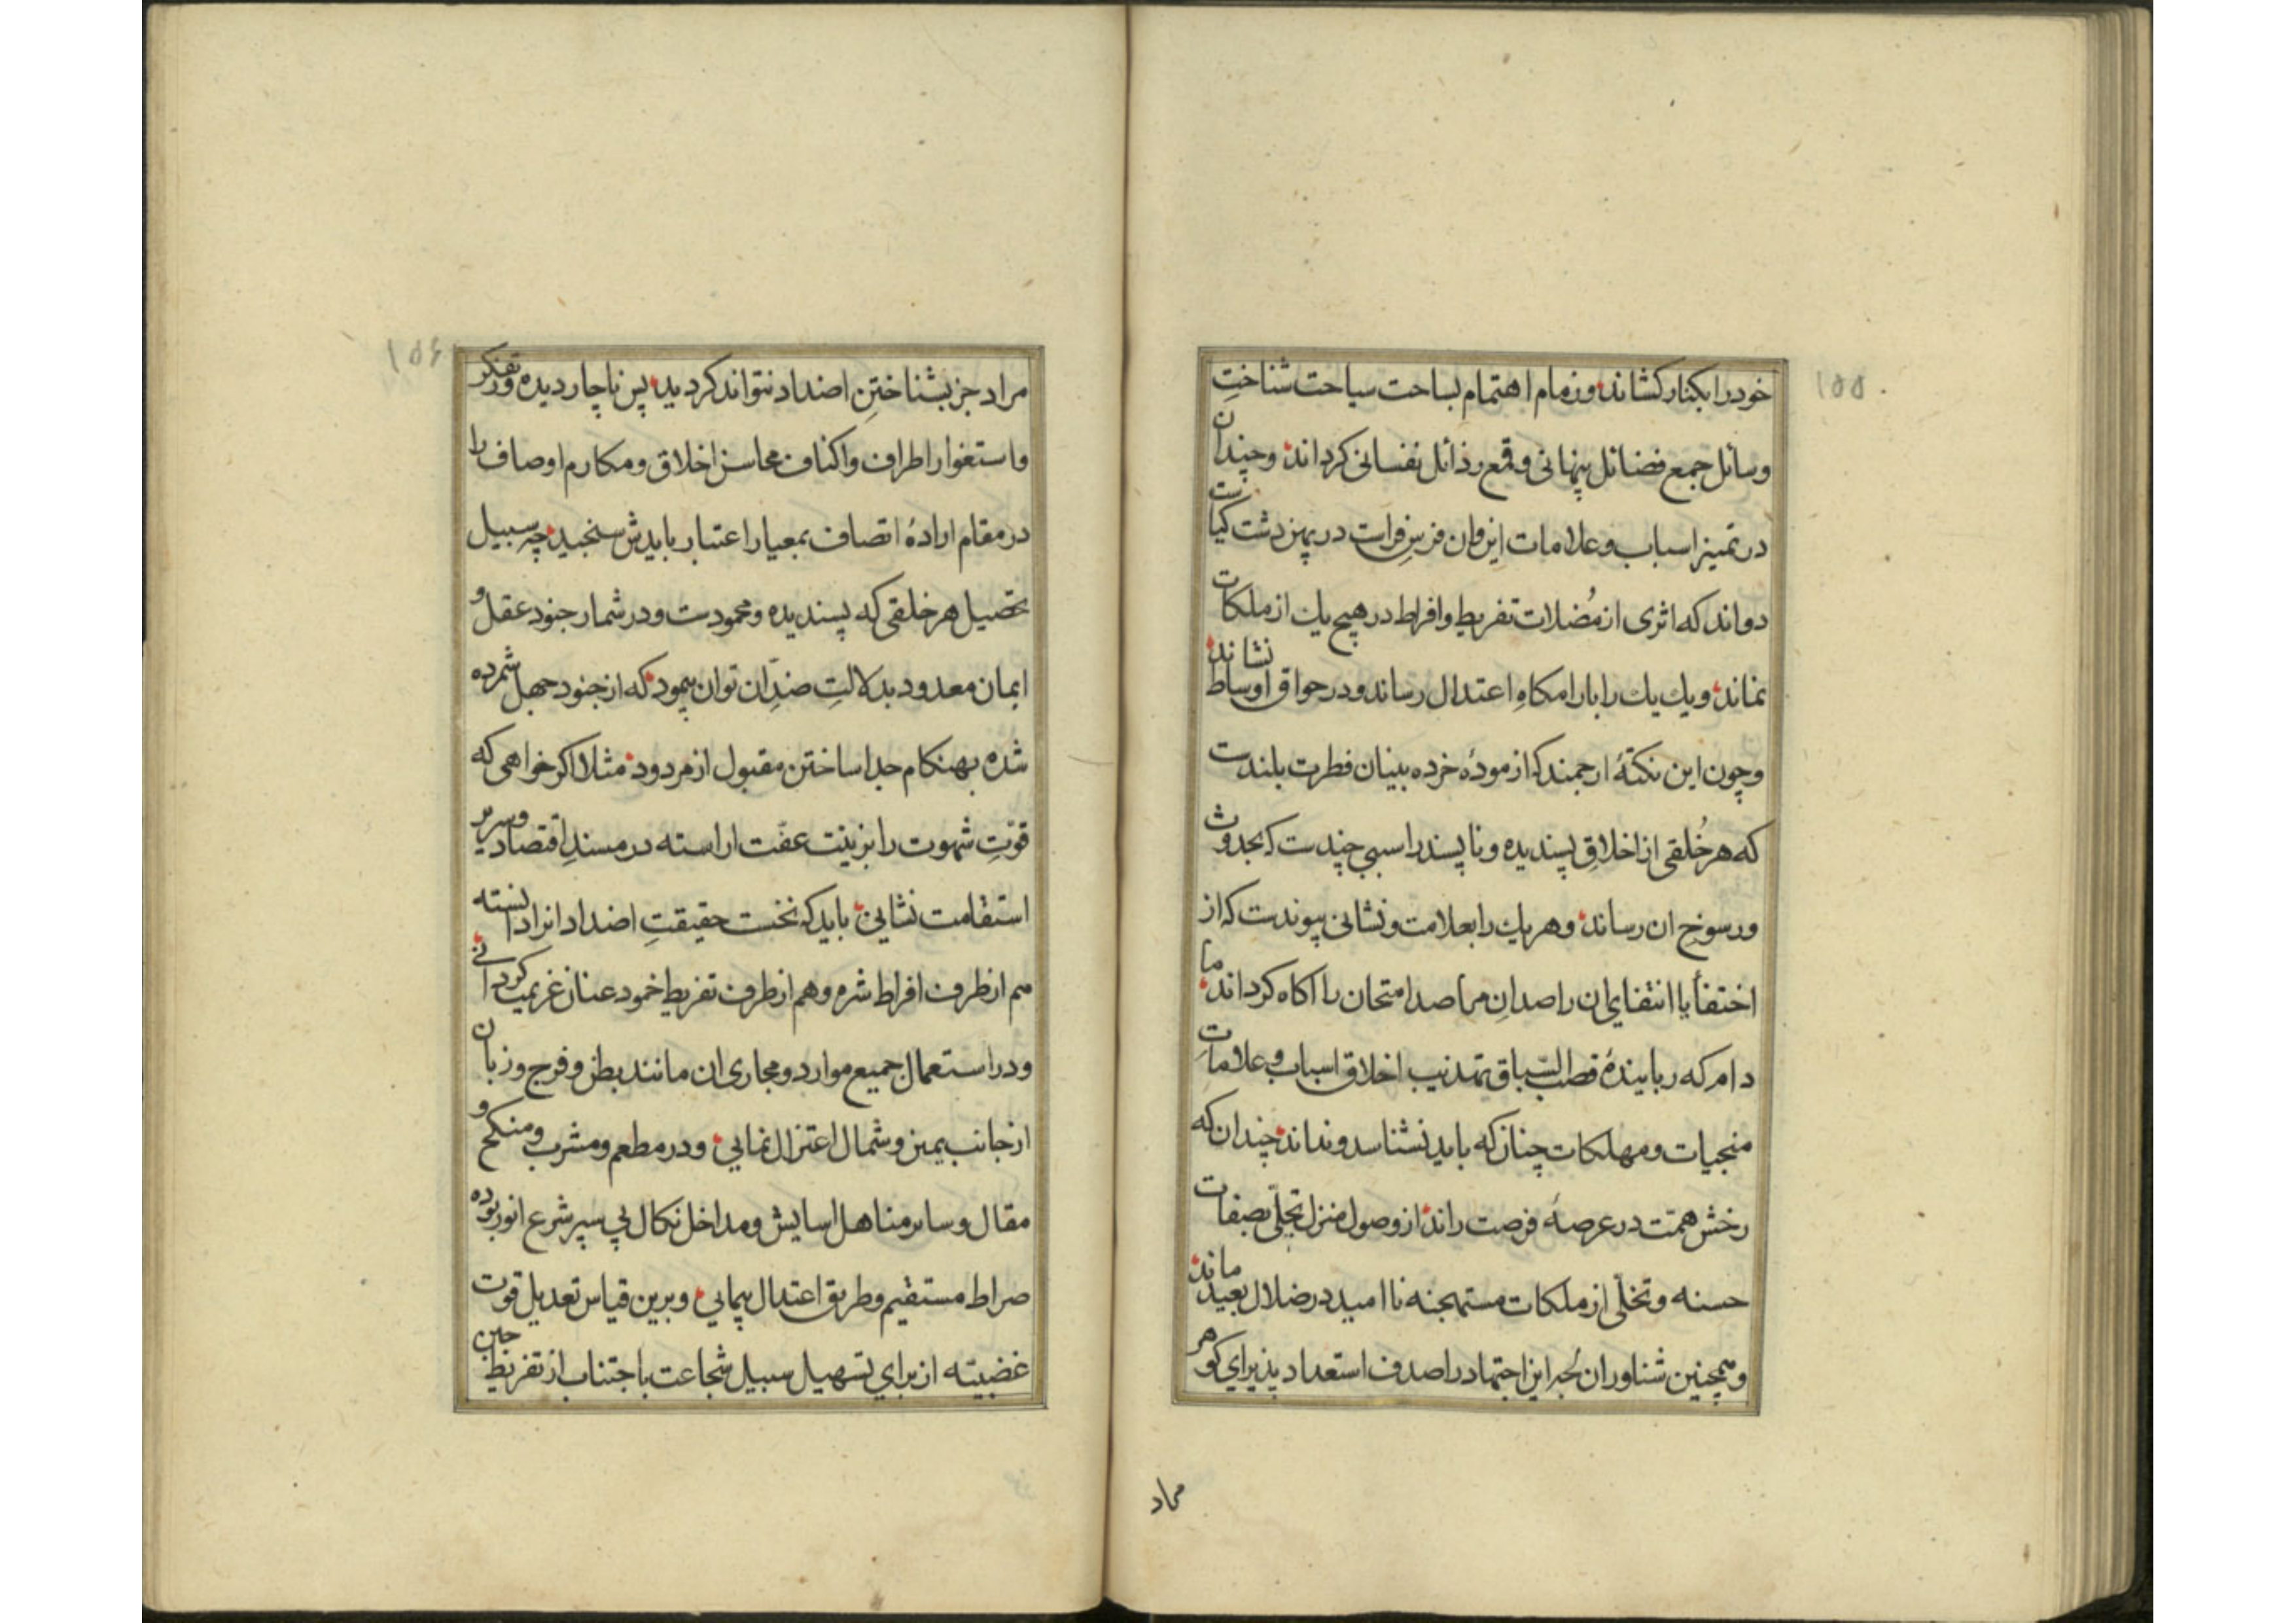 ۱۵۵
خود را بکنار کشاند و زمام اهتمام بساحت سیاحت شناختِ
وسائل جمع فضائل پنهانی و قمع رذائل نفسانی کرداند وچندان
در تمییز اسباب و علامات این وان فرسِ فراست در پهن دشت کیاست
دواند که اثری از مُضلات تفریط وافراط در هیچ یك از ملکات
نماند ویك یك را بارامکاهِ اعتدال رساند ودر حواق اوساط نشاند
وچون این نکتهٔ ارجمند که ازمودهٔ خرده بینان فطرت بلندست
که هر خُلقی از اخلاقِ پسندیده و ناپسند را سببی چندست که بحدوث
ورسوخ ان رساند وهر یك را بعلامت ونشانی پیوندست که از
اختفأ یا انتفا یمان راصدانِ مراصد امتحان را اکاه کرداند ما
دام که ربایندهٔ قصب السّباق تهذیب اخلاق اسباب وعلاماتِ
منجیات ومهلکات چنان که باید نشناسد ونداند چندان که
رخش همّت در عرصهٔ فرصت راند از وصول منزل تجلّی بصفات
حسنه وتخلّی از ملکات مستهجنه ناامید در ضلال بعید ماند
وهمچنین شناوران بحر این اجتهاد را صدف استعداد پذیرای کوهر
مراد
۱۵۶
مراد جز بشناختنِ اضداد نتواند کردید پس ناچار دیده ور تفکر
واستغوار اطراف واکناف محاسن اخلاق ومکارم اوصاف را
در مقام ارادهٔ اتصاف بمعیار اعتبار بایدش سنجید چه سبیل
تحصیل هر خلقی که پسندیده ومحمودست ودر شمار جنود عقل و
ایمان معدود بدلالتِ ضدِّ ان توان پیمود که از جنود جهل شمرده
شده بهنکام جدا ساختن مقبول از مردود مثلا اکر خواهی که
قوّتِ شهوت را بزینت عفّت اراسته در مسندِ اقتصاد وسریر
استقامت نشانی باید که نخست حقیقتِ اضداد انرا دانسته
هم از طرف افراط شره وهم از طرف تفریط خمود عنان عزیمت کردانی
ودر استعمال جمیع موارد ومجاری ان مانند بطن وفرج وزبان
از جانب یمین وشمال اعتزال نمایی ودر مطعم ومشرب ومنکح و
مقال وسایر مناهل اسایش ومداخل نکال پی سپر شرع انور بوده
صراط مستقیم وطریق اعتدال پیمایی وبرین قیاس تعدیل قوت
غضبیّه از برای تسهیل سبیل شجاعت با اجتناب از تفریط جبن